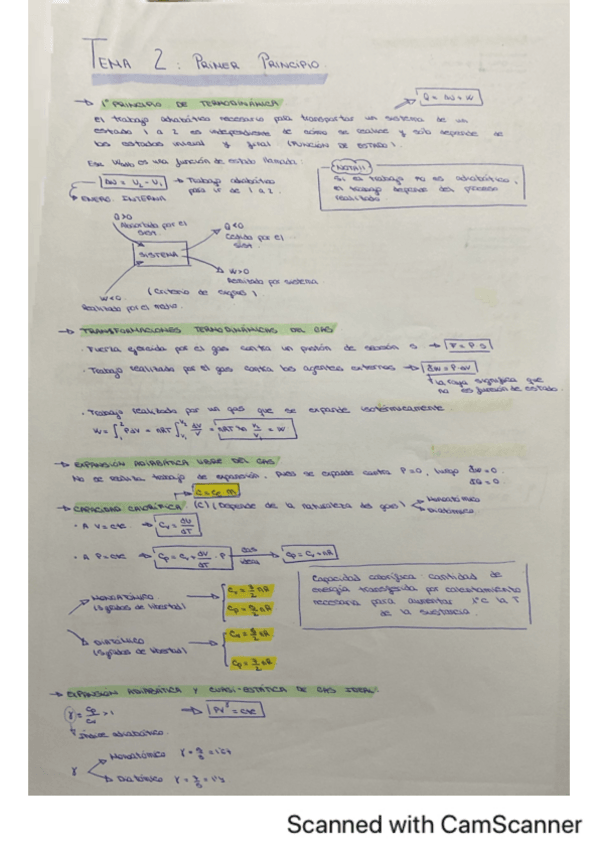 TEMA 2: PRIMER PRINCIPIO.
→ 1º PRINCIPIO DE TERMODINÁMICA
Q = ΔU + W
El trabajo adiabático necesario para transportar un sistema de un
estado 1 a 2 es independiente de cómo se realice y solo depende de
los estados inicial y final (FUNCIÓN DE ESTADO).
Ese es una función de estado llamada:
NOTA!!
Si el trabajo no es adiabático,
el trabajo depende del proceso
realizado
ΔU = U₂ - U₁ → Trabajo adiabático
para ir de 1 a 2.
ENERG. INTERNA
Q>0
Absorbido por el
sist.
Q<0
Cedido por el
sist.
SISTEMA
W>0
Realizado por sistema
W<0
(Criterio de signos).
Realizado por el medio.
→ TRANSFORMACIONES TERMODINÁMICAS DEL GAS
· Fuerza ejercida por el gas contra un pistón de sección S → F = P·S
· Trabajo realizado por el gas contra los agentes externos → δW = P·dV
la raya significa que
no es función de estado.
· Trabajo realizado por un gas que se expande isotérmicamente
W = ∫₁² PdV = nRT ∫ dV/V = nRT ln V₂/V₁ = W
→ EXPANSIÓN ADIABÁTICA LIBRE DEL GAS
No se realiza trabajo de expansión, pues se expande contra P=0, luego δW=0.
δQ=0.
C = Ce m
→ CAPACIDAD CALORÍFICA (C) (Depende de la naturaleza del gas) Monoatómico
Diatómico
· A V=cte. → Cv = dU/dT
· A P=cte → Cp = Cv + dV/dT · P gas ideal → Cp = Cv + nR
Capacidad calorífica: cantidad de
energía transferida por calentamiento
necesaria para aumentar 1ºC la T
de la sustancia.
MONOATÓMICO
(3 grados de libertad)
Cv = 3/2 nR
Cp = 5/2 nR
DIATÓMICO
(5 grados de libertad)
Cv = 5/2 nR
Cp = 7/2 nR
→ EXPANSIÓN ADIABÁTICA Y CUASI-ESTÁTICA DE GAS IDEAL:
γ = Cp/Cv > 1 → PV^γ = cte
Índice adiabático.
γ
Monoatómico γ = 5/3 = 1'67
Diatómico γ = 7/5 = 1'4
Scanned with CamScanner